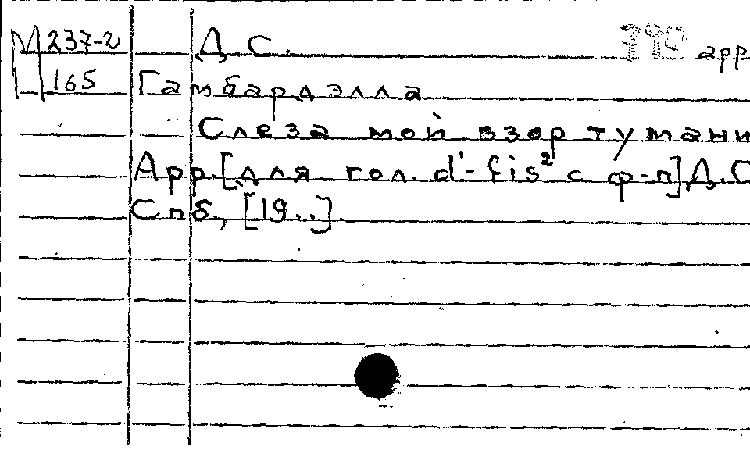 М 237-2 Д. С. арр
165 Гамбарделла
Слеза мой взор тумани
Арр. [для гол. d'-fis² с ф-п] Д. С
Спб, [19..]